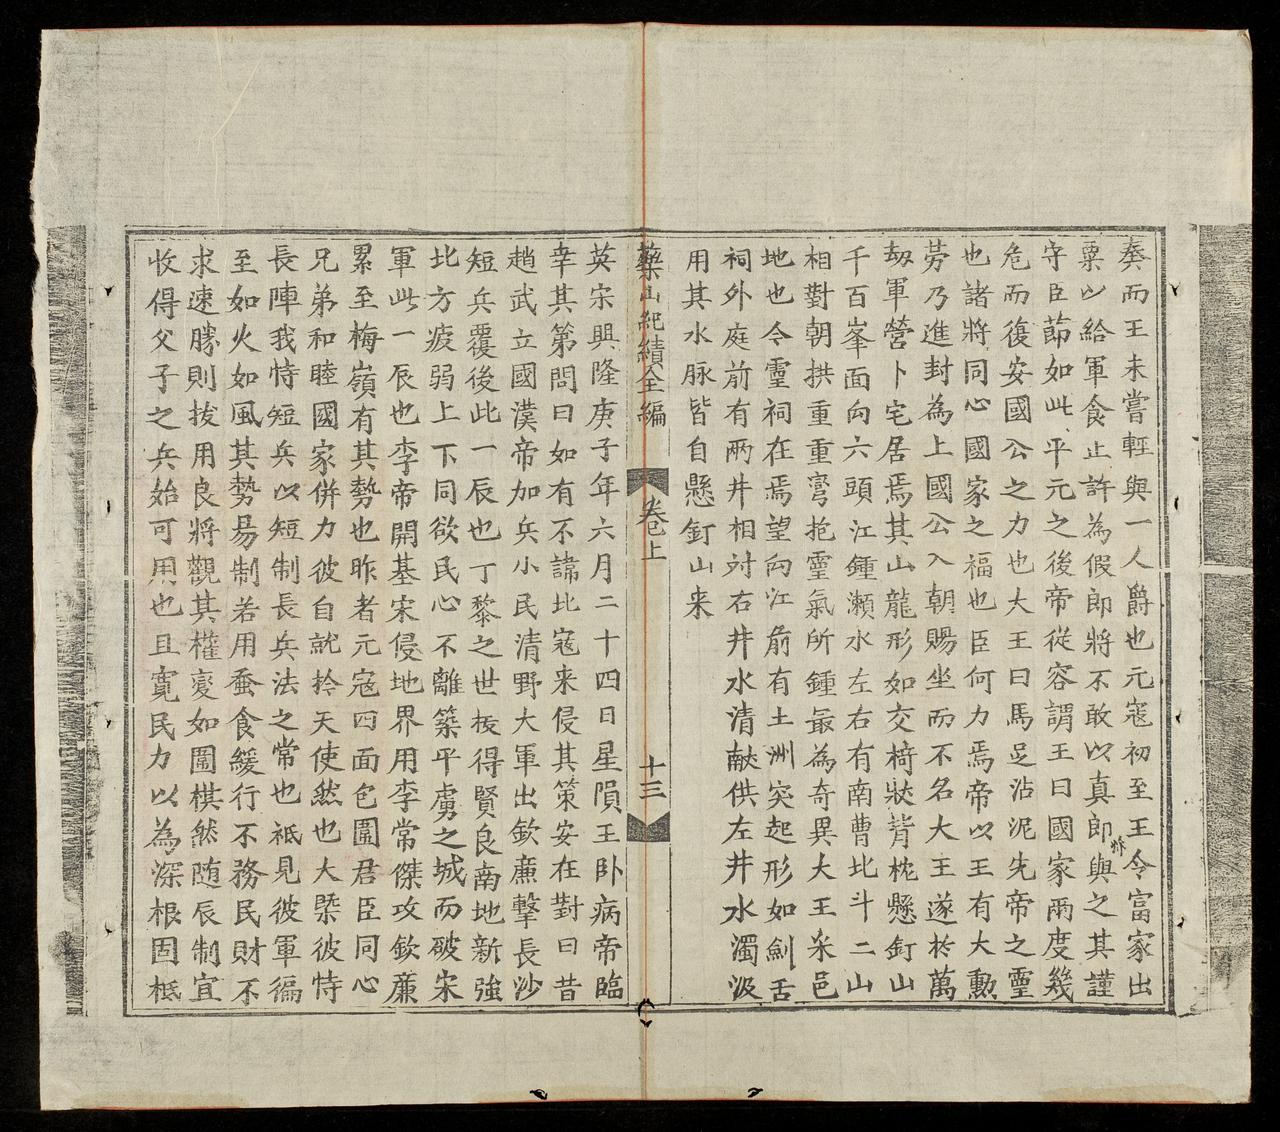 奏而王未嘗輕與一人爵也元寇初至王令富家出
粟以給軍食止許為假郎將不敢以真郎將與之其謹
守臣節如此平元之後帝從容謂王曰國家兩度幾
危而復安國公之力也大王曰馬足沾泥先帝之靈
也諸將同心國家之福也臣何力焉帝以王有大勳
劳乃進封為上國公入朝賜坐而不名大王遂於萬
刼軍營卜宅居焉其山龍形如交椅狀背枕懸釘山
千百峯面向六頭江鍾瀬水左右有南曹北斗二山
相對朝拱重重弯抱靈氣所鍾最為奇異大王采邑
地也令靈祠在焉望向江前有土洲突起形如劍舌
祠外庭前有兩井相对右井水清献供左井水濁汲
用其水脉皆自懸釘山来
藥山紀績全編 卷上 十三
英宋興隆庚子年六月二十四日星隕王卧病帝臨
幸其第問曰如有不諱北寇来侵其策安在對曰昔
趙武立國漢帝加兵小民清野大軍出欽亷擊長沙
短兵覆後此一辰也丁黎之世拔得賢良南地新強
北方疲弱上下同欲民心不離築平虜之城而破宋
軍此一辰也李帝開基宋侵地界用李常傑攻欽廉
累至梅嶺有其勢也昨者元寇四面包圍君臣同心
兄弟和睦國家併力彼自就拎天使然也大槩彼恃
長陣我恃短兵以短制長兵法之常也祗見彼軍徧
至如火如風其勢易制若用蚕食緩行不務民財不
求速勝則拔用良將觀其權变如圍棋然随辰制宜
收得父子之兵始可用也且寛民力以為深根固柢